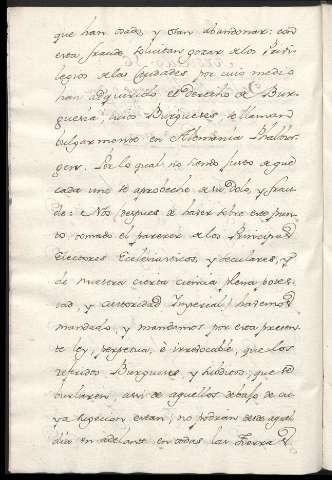 que han osado, y osan abandonar: con
esta fraude, solicitan gozar de los Privi-
legios de las Ciudades por cuio medio
han adquirido el Derecho de Bur-
guesia, cuios Burgueses, se llaman
vulgarmente en Alemania Phalbur-
gers. Por lo qual no siendo justo de que
cada uno se aproveche de su Dolo, y frau-
de: Nos, despues de haver sobre este pun-
to tomado el parecer de los Principes
Electores Eclesiasticos, y seculares, y
de nuestra cierta ciencia plena potes-
tad, y autoridad Imperial: hacemos
mandado, y mandamos por esta presen-
te ley, perpetua, è irrebocable, que los
referidos Burgueses, y subditos, que se
burlaren, assi de aquellos debajo de cu-
ya sugecion estan, no podran desde aquel
dia en adelante en todas las tierras